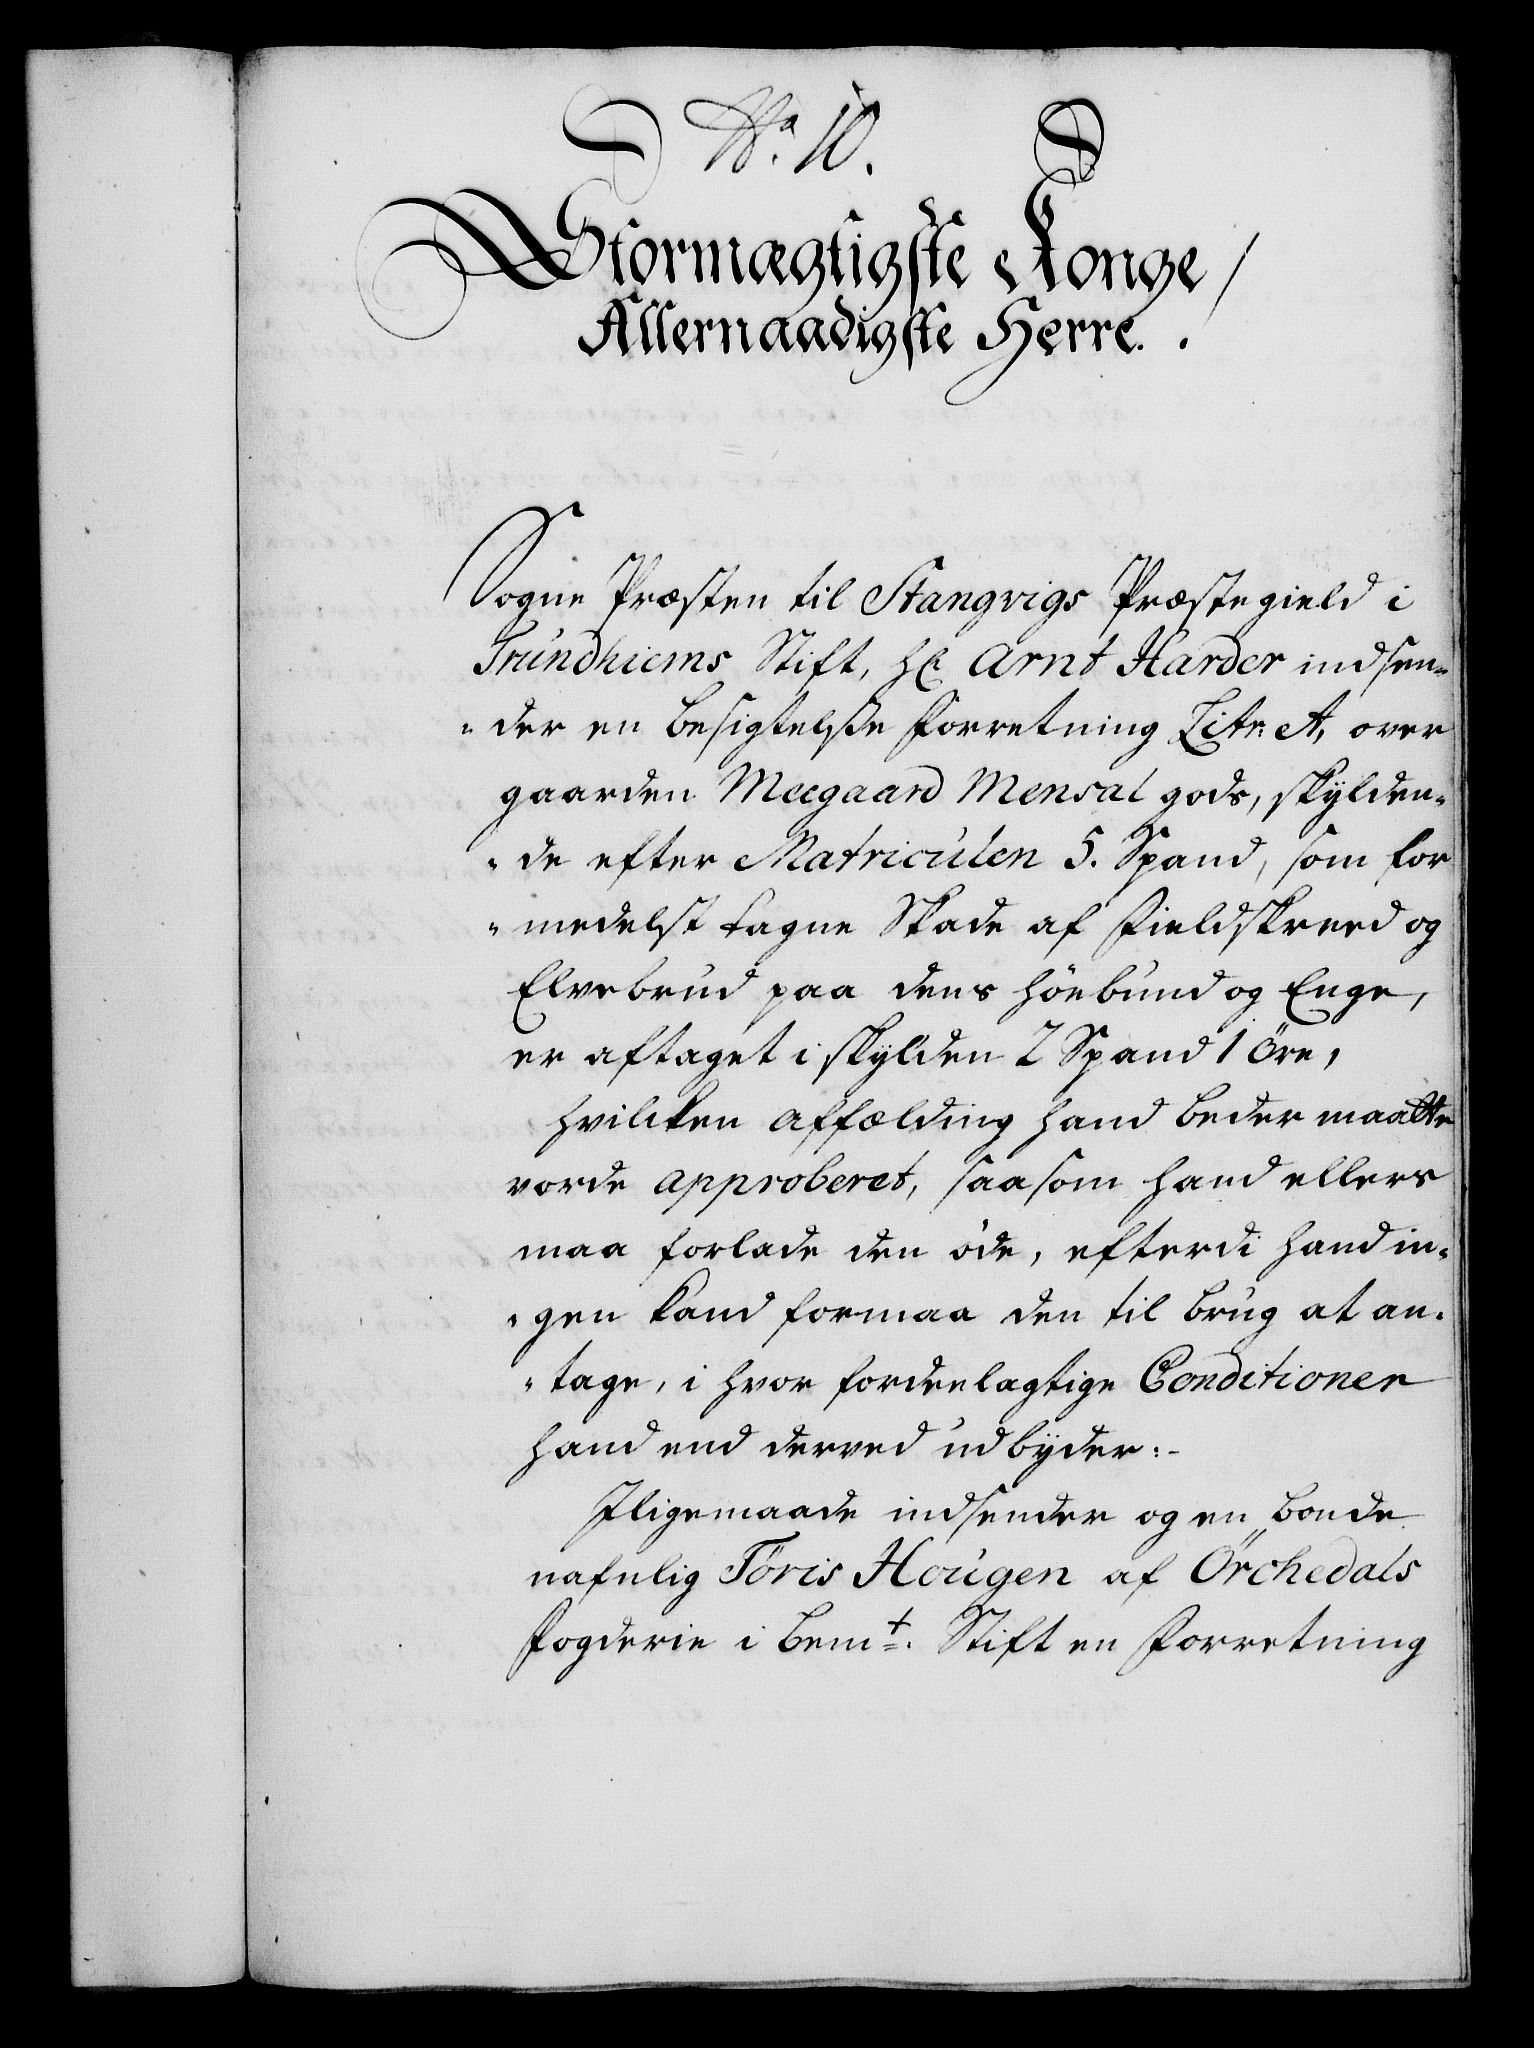 No. 10.
Stormægtigste Konge /
Allernaadigste Herre. .
Sogne Præsten til Stangvigs Præstegield i
Trundhiems Stift, Hr. Arnt Harder indsen„
„der en besigtelsse Forretning Litr: A, over
gaarden Meegaard Mensal gods, skÿlden„
„de efter Matriculen 5. Spand, som for
„medelst tagne Skade af Fieldskreed og
Elvebrud paa dens höebund og Enge,
er aftaget i skÿlden 2 Spand 1 Öre,
hvilcken affælding hand beder maatte
vorde approberet, saasom hand ellers
maa forlade den øde, efterdi hand in„
„gen kand formaa den til brug at an„
„tage, i hvor fordeelagtige Conditioner
hand end derved udbÿder:-
Iligemaade indsender og en bonde
nafnlig Töris Hougen af Örchedals
Fogderie i bemt. Stift en Forretning